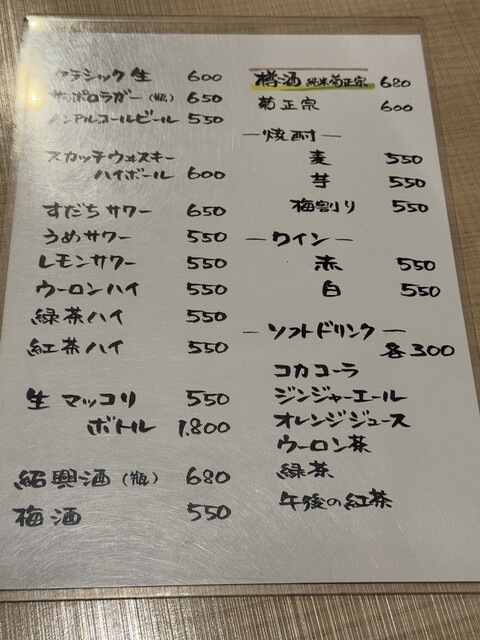 クラシック 生 600
サッポロラガー (瓶) 650
ノンアルコールビール 550
スカッチウォスキー
ハイボール 600
すだち サワー 650
うめサワー 550
レモンサワー 550
ウーロンハイ 550
緑茶ハイ 550
紅茶ハイ 550
生 マッコリ 550
ボトル 1.800
紹興酒 (瓶) 680
梅酒 550
樽酒 純米菊正宗 680
菊正宗 600
ー焼酎ー
麦 550
芋 550
梅割り 550
ーワインー
赤 550
白 550
ーソフトドリンクー
各300
コカコーラ
ジンジャーエール
オレンジジュース
ウーロン茶
緑茶
午後の紅茶